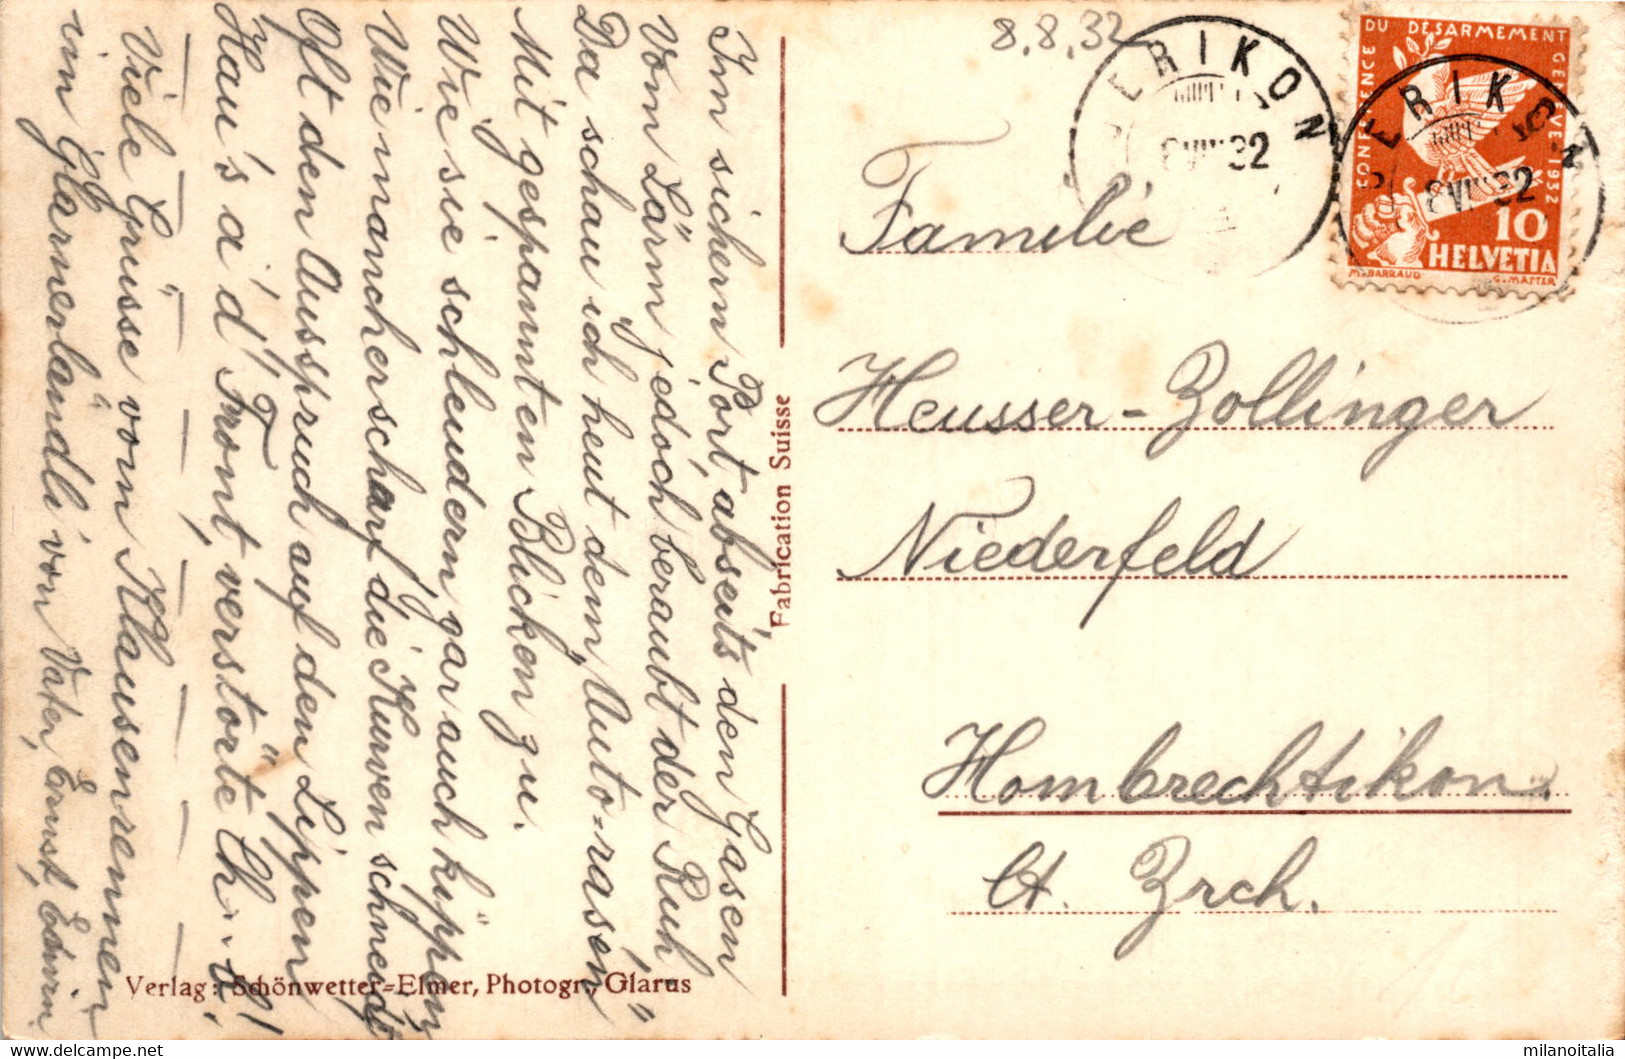 Im sichern Port abseits den Gasen
Vom Lärm jedoch beraubt der Ruh"
Da schau ich heut dem "Auto-rasen"
Mit gespannten Blicken zu.
Wie sie schleudern gar auch kippen
Wie mancher scharf die Kurven schneid
Oft den Ausspruch auf den Lippen
Hau's a' d' Front verstörte Ch
Viele Grüsse vom Klausenrennen
im Glarnerländli von Vater, Ernst, Edwin
Verlag: Schönwetter-Elmer, Photogr., Glarus
Fabrication Suisse
8.8.32
OERIKON
8 VIII 32
OERIKON
8 VIII 32
CONFERENCE DU DESARMEMENT GENEVE 1932
10
HELVETIA
M. BARRAUD G. MATTER
Familie
Heusser-Zollinger
Niederfeld
Hombrechtikon.
Ct. Zrch.
milanoitalia
www.delcampe.net